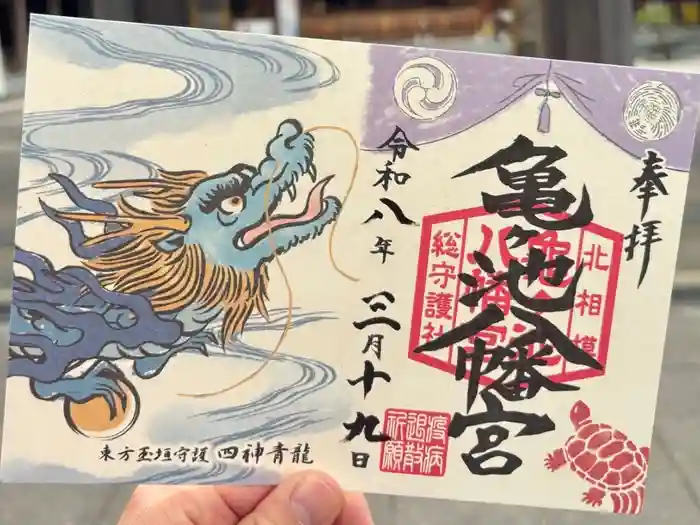 奉拝
亀ヶ池八幡宮
北相模
亀ヶ池
八幡宮
総守護社
疫病
退散
祈願
令和八年三月十九日
東方玉垣守護 四神青龍